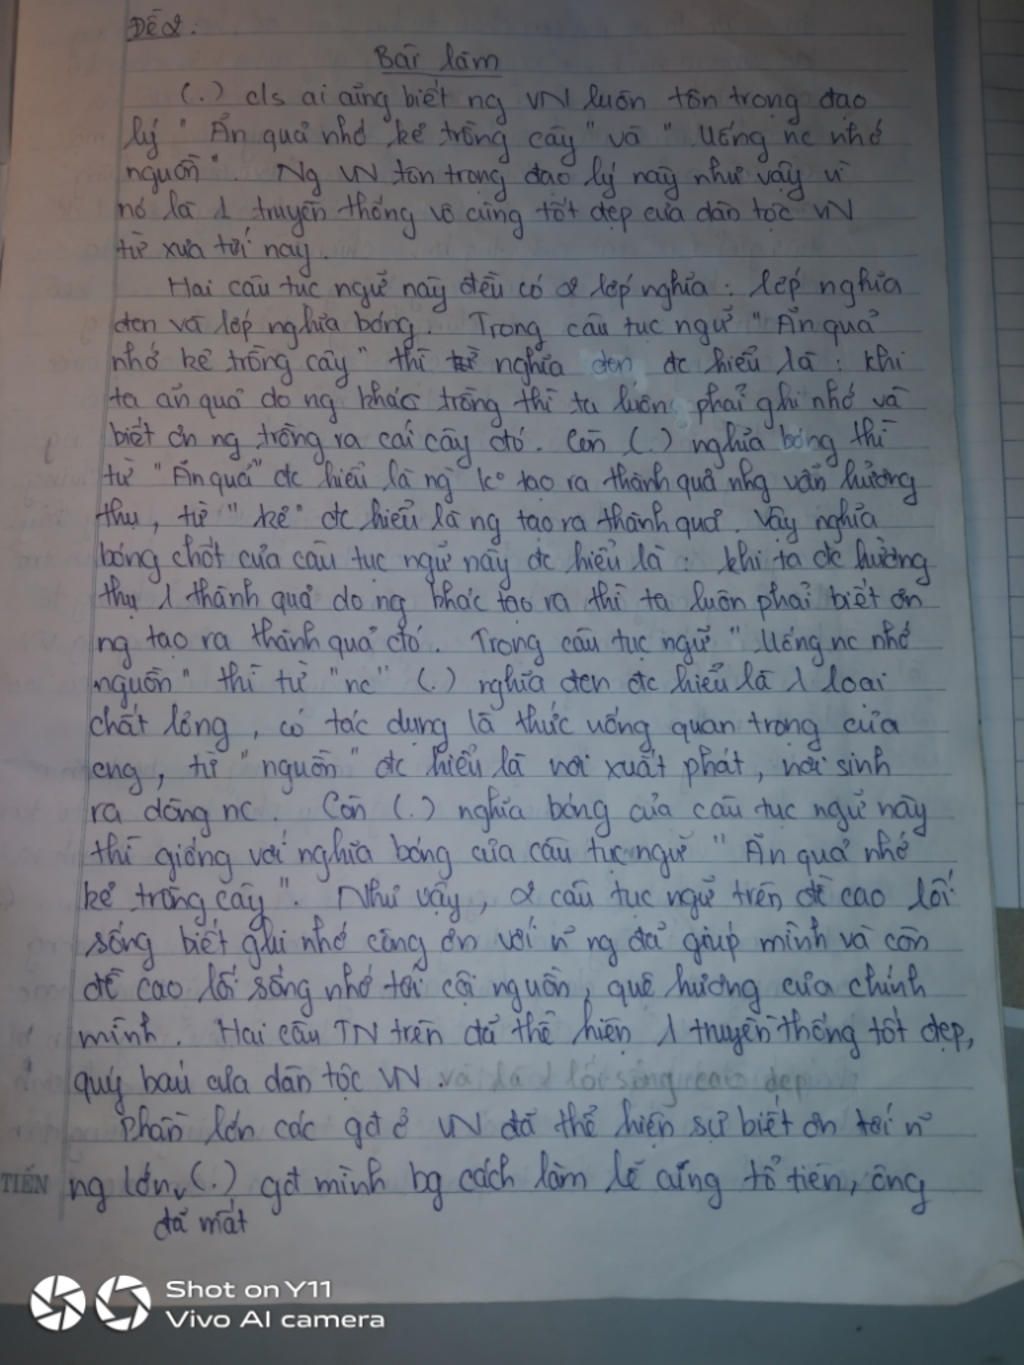 Đề 2:
Bài làm
(.) c/s ai cũng biết ng VN luôn tôn trọng đạo
lý " Ăn quả nhớ kẻ trồng cây " và " Uống nc nhớ
nguồn ". Ng VN tôn trọng đạo lý này như vậy vì
nó là 1 truyền thống vô cùng tốt đẹp của dân tộc VN
từ xưa tới nay.
Hai câu tục ngữ này đều có 2 lớp nghĩa : lớp nghĩa
đen và lớp nghĩa bóng. Trong câu tục ngữ " Ăn quả
nhớ kẻ trồng cây " thì nghĩa đen đc hiểu là : khi
ta ăn quả do ng khác trồng thì ta luôn phải ghi nhớ và
biết ơn ng trồng ra cái cây đó. Còn (.) nghĩa bóng thì
từ " Ăn quả" đc hiểu là ng ko tạo ra thành quả nhg vẫn hưởng
thụ, từ " kẻ " đc hiểu là ng tạo ra thành quả. Vậy nghĩa
bóng chốt của câu tục ngữ này đc hiểu là : khi ta đc hưởng
thụ 1 thành quả do ng khác tạo ra thì ta luôn phải biết ơn
ng tạo ra thành quả đó. Trong câu tục ngữ " Uống nc nhớ
nguồn " thì từ "nc" (.) nghĩa đen đc hiểu là 1 loại
chất lỏng, có tác dụng là thức uống quan trọng của
cng, từ " nguồn " đc hiểu là nơi xuất phát, nơi sinh
ra dòng nc. Còn (.) nghĩa bóng của câu tục ngữ này
thì giống với nghĩa bóng của câu tục ngữ " Ăn quả nhớ
kẻ trồng cây ". Như vậy, 2 câu tục ngữ trên đề cao lối
sống biết ghi nhớ công ơn với n~ ng đã giúp mình và còn
đề cao lối sống nhớ tới cội nguồn, quê hương của chính
mình. Hai câu TN trên đã thể hiện 1 truyền thống tốt đẹp,
quý báu của dân tộc VN. và là 1 lối sống cao đẹp
Phần lớn các gđ ở VN đã thể hiện sự biết ơn tới n~
TIẾN
ng lớn (.) gđ mình bg cách làm lễ cúng tổ tiên, ông
đã mất
Shot on Y11
Vivo AI camera